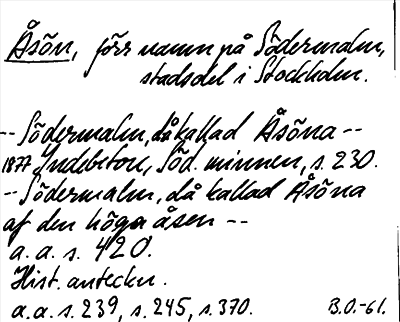 Åsön, förr namn på Södermalm,
stadsdel i Stockholm.
-- Södermalm, då kallad Åsöna --
1877 Indebetou, Söd. minnen, s. 230.
-- Södermalm, då kallad Åsöna
af den höga åsen --
a. a. s. 420.
Hist. anteckn.
a. a. s. 239, s. 245, s. 370.
B.O.-61.